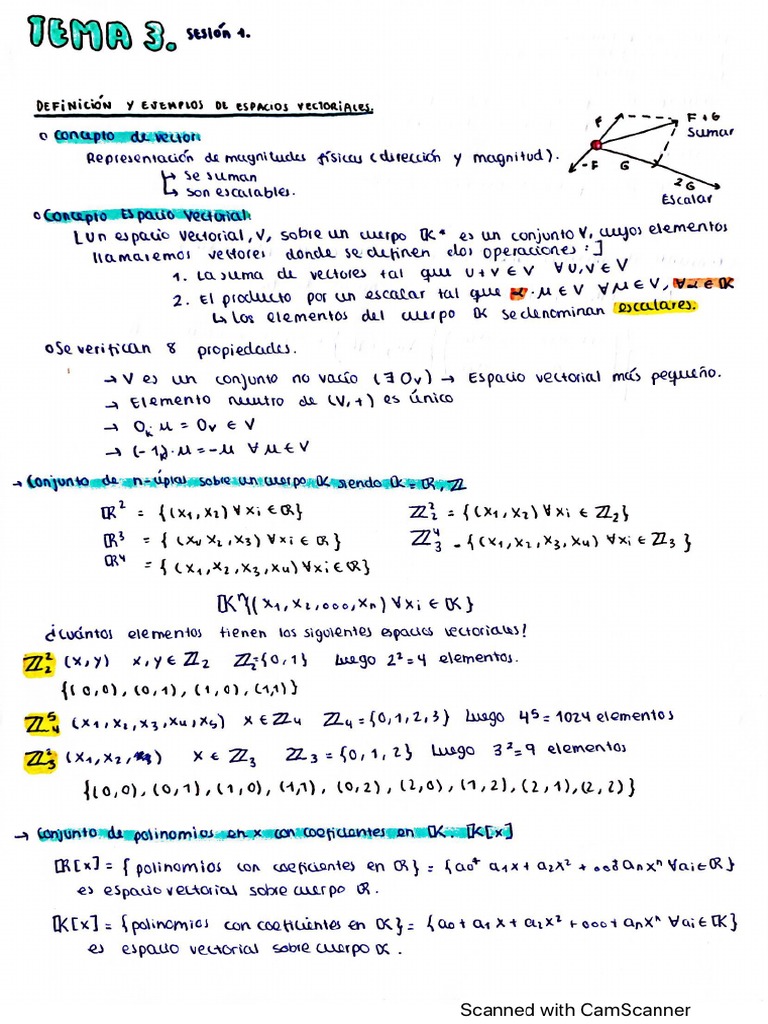 TEMA 3. SESIÓN 1.
DEFINICIÓN Y EJEMPLOS DE ESPACIOS VECTORIALES.
o Concepto de vector:
Representación de magnitudes físicas (dirección y magnitud).
↳ Se suman
↳ Son escalables.
F
F + G
Sumar
-F
G
2G
Escalar
o Concepto Espacio Vectorial:
[Un espacio vectorial, V, sobre un cuerpo 𝕂* es un conjunto V, cuyos elementos
llamaremos vectores donde se definen dos operaciones:]
1. La suma de vectores tal que u + v ∈ V ∀u, v ∈ V
2. El producto por un escalar tal que α · μ ∈ V ∀μ ∈ V, ∀α ∈ 𝕂
↳ Los elementos del cuerpo 𝕂 se denominan escalares.
o Se verifican 8 propiedades.
→ V es un conjunto no vacío (∃ 0ᵥ) → Espacio vectorial más pequeño.
→ Elemento neutro de (V, +) es único
→ 0ₖ·μ = 0ᵥ ∈ V
→ (-1)·μ = -μ ∀μ ∈ V
→ Conjunto de n-úplas sobre un cuerpo 𝕂 siendo 𝕂 = ℝ, ℤ
ℝ² = {(x₁, x₂) ∀xi ∈ ℝ} ℤ₂² = {(x₁, x₂) ∀xi ∈ ℤ₂}
ℝ³ = {(x₁, x₂, x₃) ∀xi ∈ ℝ} ℤ₃⁴ = {(x₁, x₂, x₃, x₄) ∀xi ∈ ℤ₃}
ℝ⁴ = {(x₁, x₂, x₃, x₄) ∀xi ∈ ℝ}
𝕂ⁿ{(x₁, x₂, ..., xₙ) ∀xi ∈ 𝕂}
¿Cuántos elementos tienen los siguientes espacios vectoriales?
ℤ₂² (x, y) x, y ∈ ℤ₂ ℤ₂={0, 1} Luego 2² = 4 elementos.
{(0,0), (0,1), (1,0), (1,1)}
ℤ₄⁵ (x₁, x₂, x₃, x₄, x₅) x ∈ ℤ₄ ℤ₄ = {0, 1, 2, 3} Luego 4⁵ = 1024 elementos
ℤ₃² (x₁, x₂) x ∈ ℤ₃ ℤ₃ = {0, 1, 2} Luego 3² = 9 elementos
{(0,0), (0,1), (1,0), (1,1), (0,2), (2,0), (1,2), (2,1), (2,2)}
→ Conjunto de polinomios en x con coeficientes en 𝕂. 𝕂[x]
ℝ[x] = {polinomios con coeficientes en ℝ} = {a₀ + a₁x + a₂x² + ... aₙxⁿ ∀ai ∈ ℝ}
es espacio vectorial sobre cuerpo ℝ.
𝕂[x] = {polinomios con coeficientes en 𝕂} = {a₀ + a₁x + a₂x² + ... + aₙxⁿ ∀ai ∈ 𝕂}
es espacio vectorial sobre cuerpo 𝕂.
Scanned with CamScanner